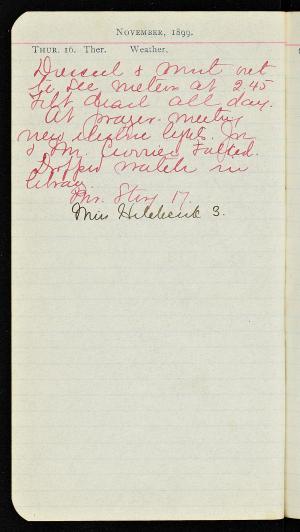 November, 1899.
Thur. 16. Ther. Weather.
Dressed & went out
to see meteors at 2.45
Felt dead all day.
At prayer-meeting
new electric lights. Jn
& Mr. Currier talked.
Dropped watch in
library.
Mr. Story 17.
Miss Hitchcock 3.